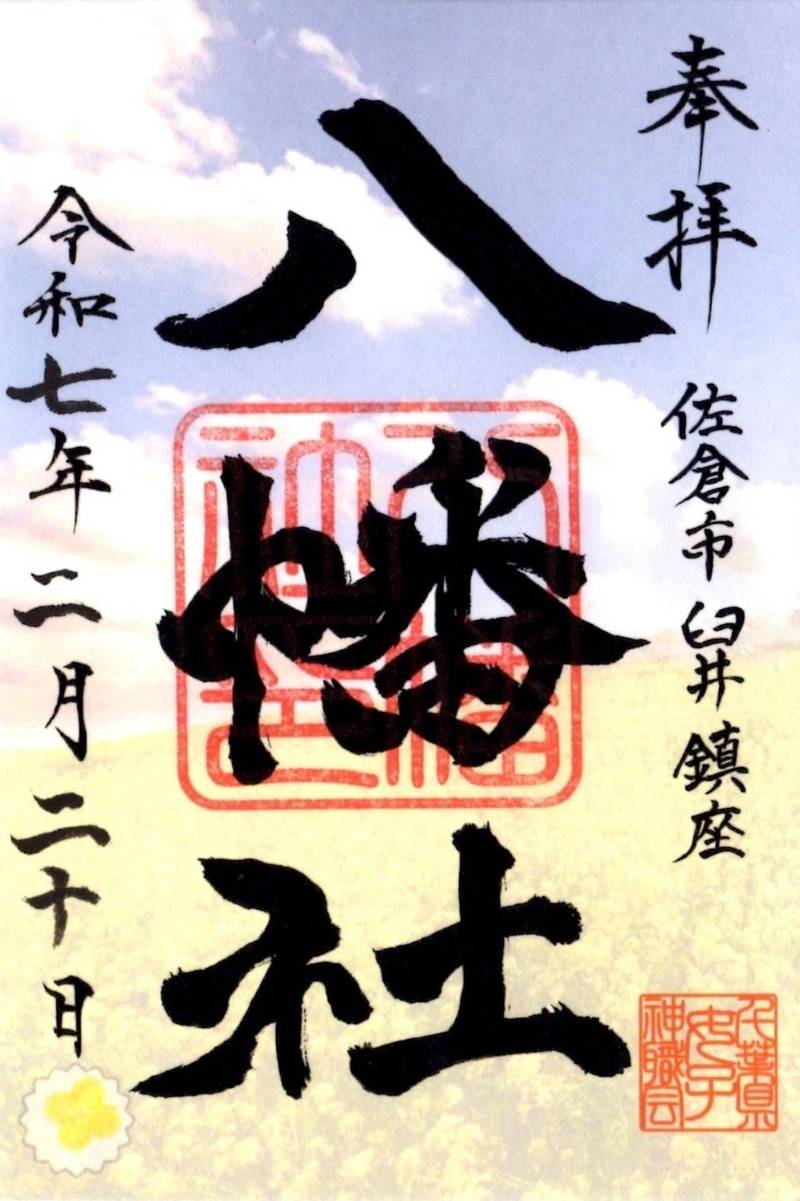 奉拝
佐倉市臼井鎮座
八幡社
令和七年二月二十日
八幡神社
千葉県
女子
神職会